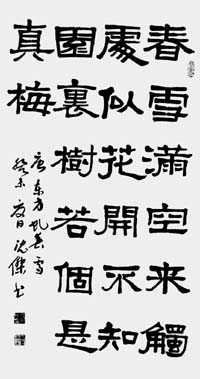 春雪滿空来觸
處似花開不知
園裏樹若個是
真梅
唐东方虬春雪
癸未夏日沈傑书